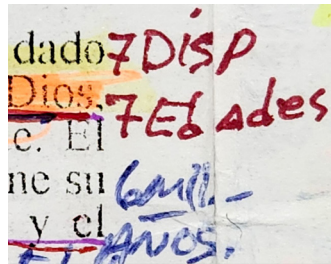 dado 7 DiSP
Dios, 7 Edades
e. El
ne su 6 mil-
y el AÑOS.